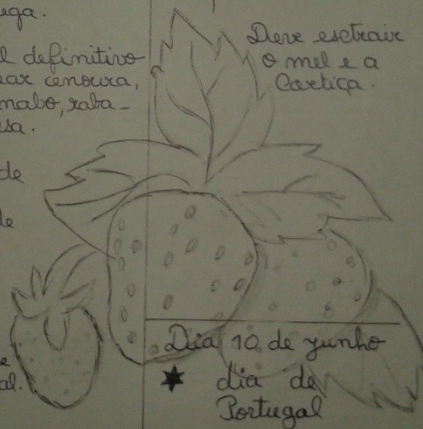 ega.
l definitivo
ar cenoura,
nabo, raba-
sa.
de
de
e
al.
Deve esctrair
o mel e a
Cortiça.
Dia 10 de yunho
dia de
Portugal